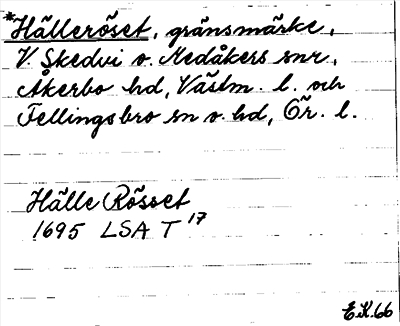 *Hälleröset, gränsmärke,
V. Skedvi o. Medåkers snr,
Åkerbo hd, Västm. l. och
Fellingsbro sn o. hd, Ör. l.
Hälle Rösset
1695 LSA T 17
E.K.66